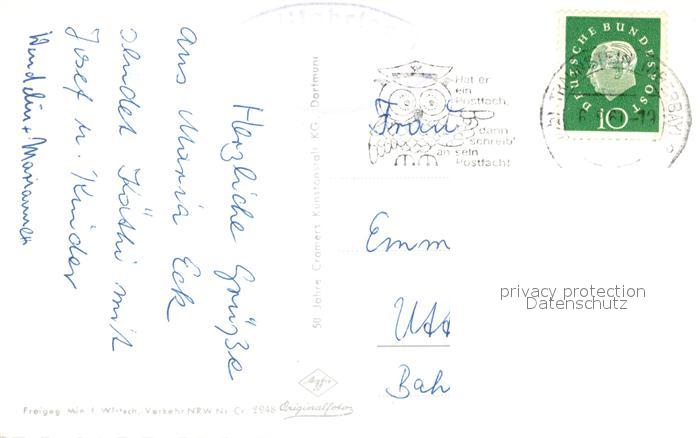 Herzliche Grüße
aus Maria Eck
sendet Käthi mit
Josef u. Kinder
50 Jahre Cramers Kunstanstalt KG., Dortmund
Hat er
ein
Postfach,
dann
schreib'
an sein
Postfach!
DEUTSCHE BUNDESPOST
10
Frau
Emm
Utt
Bah
privacy protection
Datenschutz
Agfa
Originalfoto
Freigeg. Min. f. Wirtsch. Verkehr NRW Nr. Cr. 2948